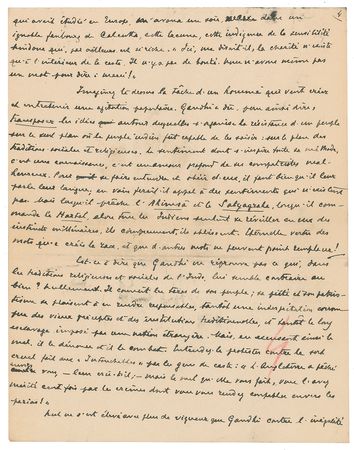 4
qui avait étudié en Europe m'avoua un soir, dans un
ignoble faubourg de Calcutta cette lacune, cette indigence de la sensibilité
hindoue qui, par ailleurs, est si riche. « Ici, me disait-il, la charité n'existe
qu'à l'intérieur de la caste. Il n'y a pas de bonté. Nous n'avons même pas
un mot pour dire : merci ! »
Imaginez là-dessus la tâche d'un homme qui veut créer
et entretenir une agitation populaire. Gandhi a dû, pour ainsi dire,
transposer les idées autour desquelles s'organise la résistance d'un peuple
sur le seul plan où le peuple indien fût capable de les saisir : sur le plan des
traditions sociales et religieuses. Le sentiment dont s'inspire toute sa méthode,
c'est une connaissance, c'est un amour profond de ses compatriotes mal-
heureux. Pour se faire entendre et obéir d'eux, il faut bien qu'il leur
parle leur langue, en vain ferait-il appel à des sentiments qui n'existent
pas. Mais lorsqu'il prêche l'Ahimsâ et le Satyagraha, lorsqu'il com-
mande le Hartal, alors tous les Indiens sentent se réveiller en eux des
instincts millénaires, ils comprennent, ils obéissent. Éternelle vertu des
mots que a créés la race, et que d'autres mots ne peuvent point remplacer !
Est-ce à dire que Gandhi ne réprouve pas ce qui, dans
les traditions religieuses et sociales de l'Inde, lui semble contraire au
bien ? Nullement. Il connaît les tares de son peuple ; sa piété et son patrio-
tisme se plaisent à en rendre responsables, tantôt une interprétation corrom-
pue des vieux préceptes et des institutions traditionnelles, et tantôt le long
esclavage imposé par une nation étrangère. Mais, en accusant ainsi le
mal, il le dénonce et il le combat. Entendez-le protester contre le sort
cruel fait aux « Intouchables » par les gens de caste : « L'Angleterre a péché
envers vous, — leur crie-t-il, — mais le mal qu'elle vous fait, vous l'avez
mérité cent fois par les crimes dont vous vous rendez coupables envers les
parias ! »
Nul ne s'est élevé avec plus de vigueur que Gandhi contre l'inégalité